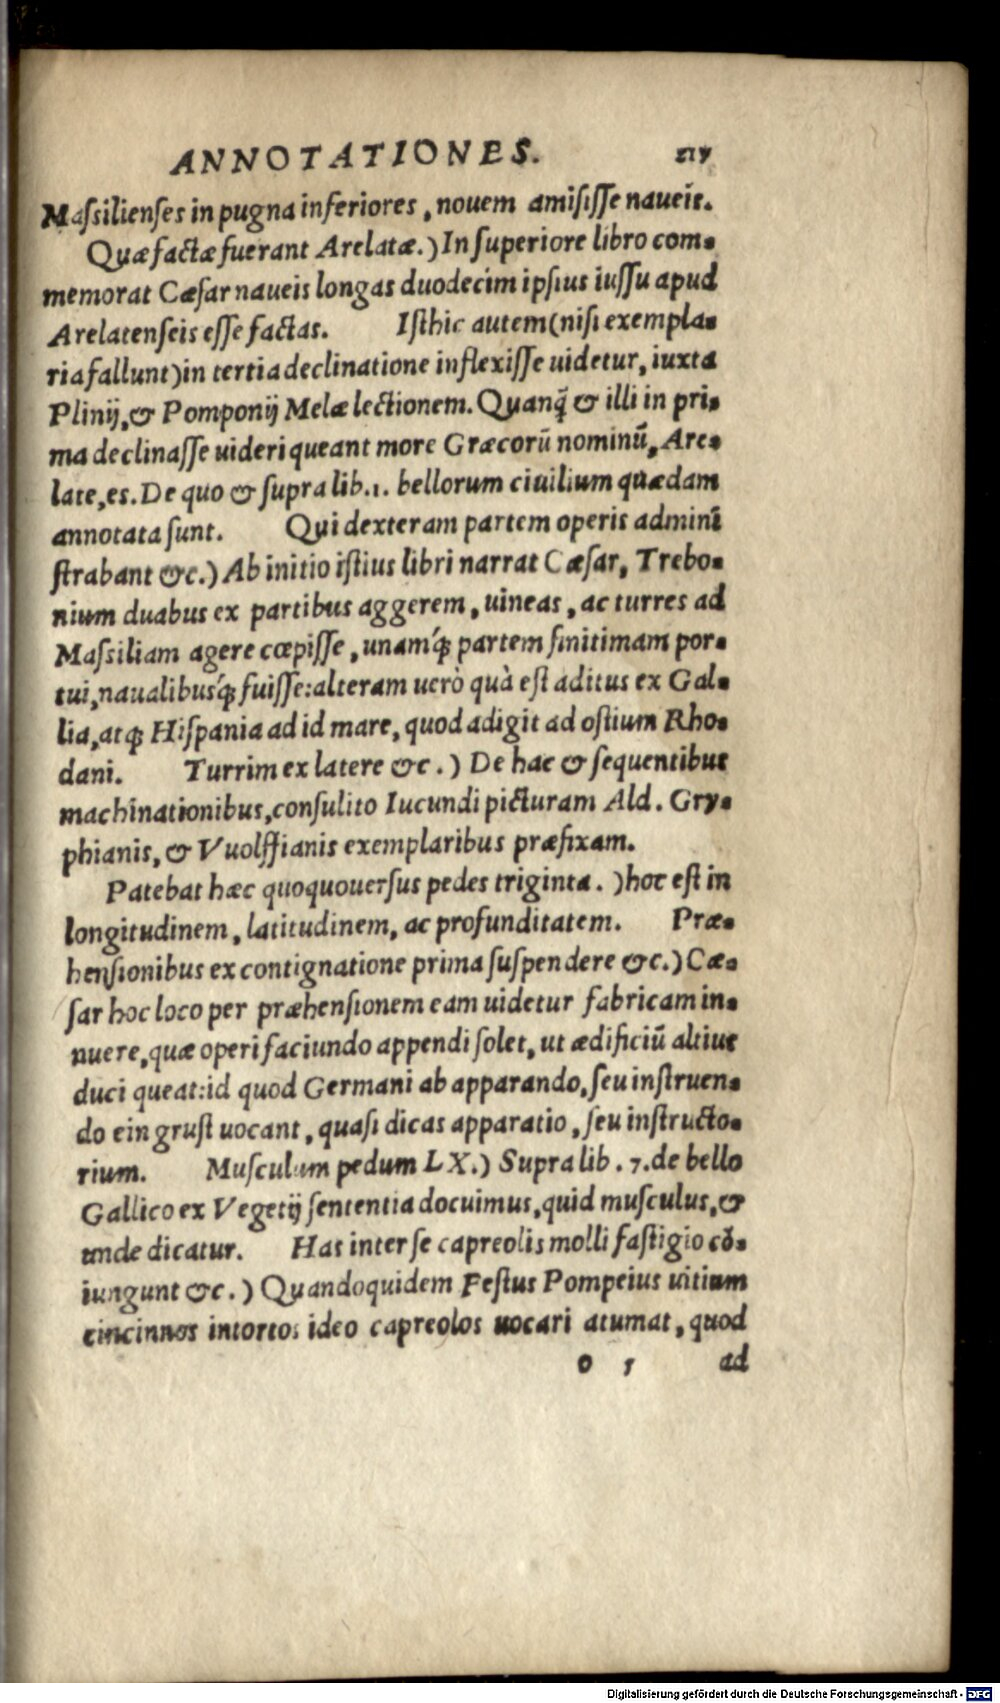 ANNOTATIONES. 217
Maſsilienſes in pugna inferiores, nouem amiſiſſe naueis.
Quæ factæ fuerant Arelatæ.) In ſuperiore libro com-
memorat Cæſar naueis longas duodecim ipſius iuſſu apud
Arelatenſeis eſſe factas. Iſthic autem (niſi exempla-
ria fallunt) in tertia declinatione inflexiſſe uidetur, iuxta
Plinij, & Pomponij Melæ lectionem. Quanq̃ & illi in pri-
ma declinaſſe uideri queant more Græcorū nominū, Are-
late, es. De quo & ſupra lib. 1. bellorum ciuilium quædam
annotata ſunt. Qui dexteram partem operis admini
ſtrabant &c.) Ab initio iſtius libri narrat Cæſar, Trebo-
nium duabus ex partibus aggerem, uineas, ac turres ad
Maſsiliam agere cœpiſſe, unamq́; partem finitimam por-
tui, naualibusq́; fuiſſe: alteram uerò quà eſt aditus ex Gal-
lia, atq; Hiſpania ad id mare, quod adigit ad oſtium Rho-
dani. Turrim ex latere &c.) De hac & ſequentibus
machinationibus, conſulito Iucundi picturam Ald. Gry-
phianis, & Vuolffianis exemplaribus præfixam.
Patebat hæc quoquouerſus pedes triginta.) hoc eſt in
longitudinem, latitudinem, ac profunditatem. Præ-
henſionibus ex contignatione prima ſuſpendere &c.) Cæ-
ſar hoc loco per præhenſionem eam uidetur fabricam in-
nuere, quæ operi faciundo appendi ſolet, ut ædificiū altius
duci queat: id quod Germani ab apparando, ſeu inſtruen-
do ein gruſt uocant, quaſi dicas apparatio, ſeu inſtructo-
rium. Muſculum pedum LX.) Supra lib. 7. de bello
Gallico ex Vegetij ſententia docuimus, quid muſculus, &
unde dicatur. Has inter ſe capreolis molli faſtigio cō-
iungunt &c.) Quandoquidem Feſtus Pompeius uitium
cincinnos intortos ideo capreolos uocari autumat, quod
o 5 ad
Digitalisierung gefördert durch die Deutsche Forschungsgemeinschaft - DFG